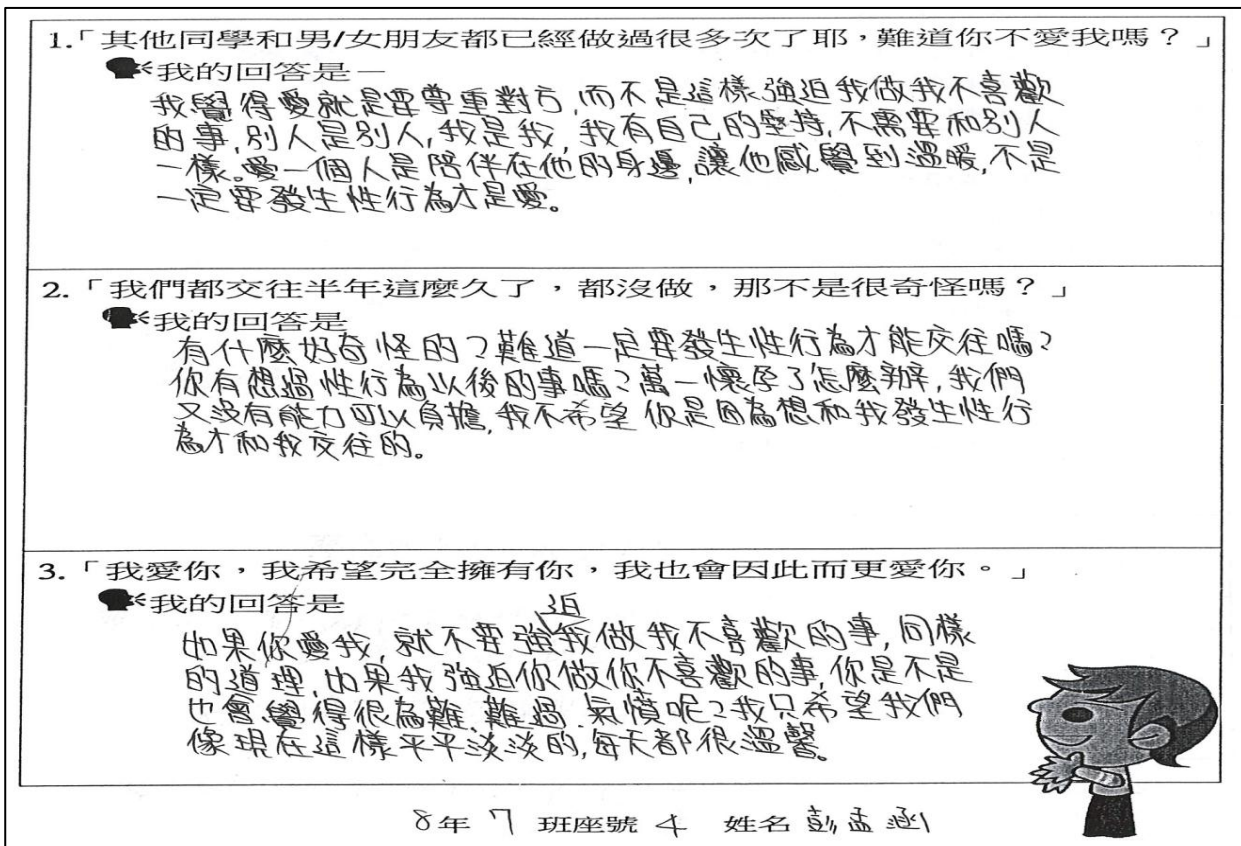 1.「其他同學和男/女朋友都已經做過很多次了耶，難道你不愛我嗎？」
我的回答是－
我覺得愛就是要尊重對方,而不是這樣強迫我做我不喜歡
的事,別人是別人,我是我,我有自己的堅持,不需要和別人
一樣。愛一個人是陪伴在他的身邊,讓他感覺到溫暖,不是
一定要發生性行為才是愛。
2.「我們都交往半年這麼久了，都沒做，那不是很奇怪嗎？」
我的回答是
有什麼好奇怪的？難道一定要發生性行為才能交往嗎？
你有想過性行為以後的事嗎？萬一懷孕了怎麼辦,我們
又沒有能力可以負擔,我不希望你是因為想和我發生性行
為才和我交往的。
3.「我愛你，我希望完全擁有你，我也會因此而更愛你。」
我的回答是
如果你愛我,就不要強迫我做我不喜歡的事,同樣
的道理,如果我強迫你做你不喜歡的事,你是不是
也會覺得很為難、難過、氣憤呢？我只希望我們
像現在這樣平平淡淡的,每天都很溫馨。
8年 7 班座號 4 姓名 彭孟涵